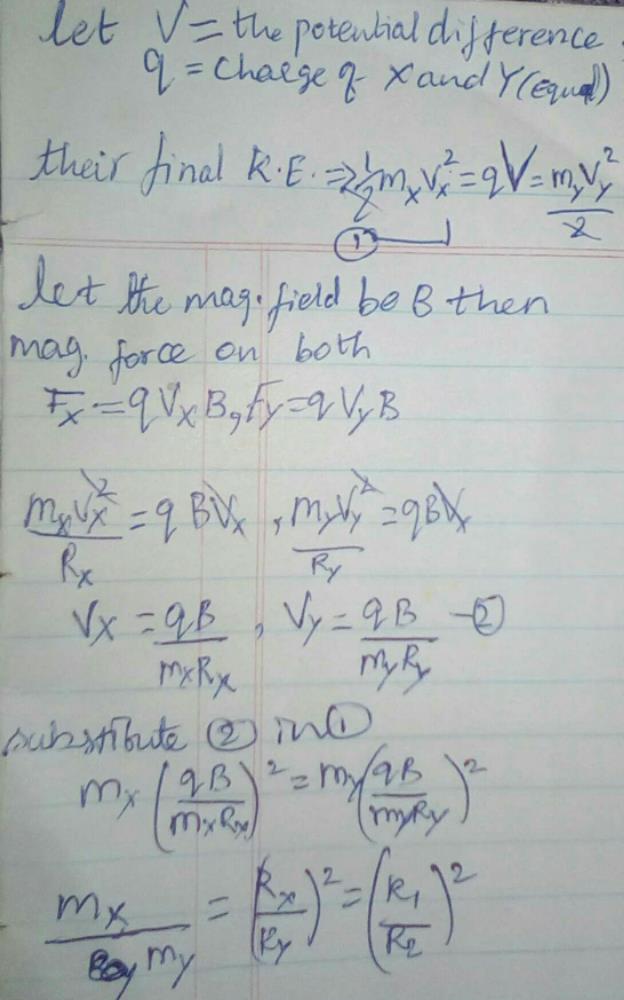 let V = the potential difference.
q = Charge of X and Y (equal)
their final K.E. ⇒ 1/2 m_x V_x^2 = qV = m_y V_y^2 / 2
①
let the mag. field be B then
mag. force on both
F_x = q V_x B, F_y = q V_y B
m_x V_x^2 / R_x = q B V_x , m_y V_y^2 / R_y = q B V_x
V_x = qB / m_x R_x , V_y = qB / m_y R_y - ②
substitute ② in ①
m_x (qB / m_x R_x)^2 = m_y (qB / m_y R_y)^2
m_x / m_y = (R_x / R_y)^2 = (R_1 / R_2)^2